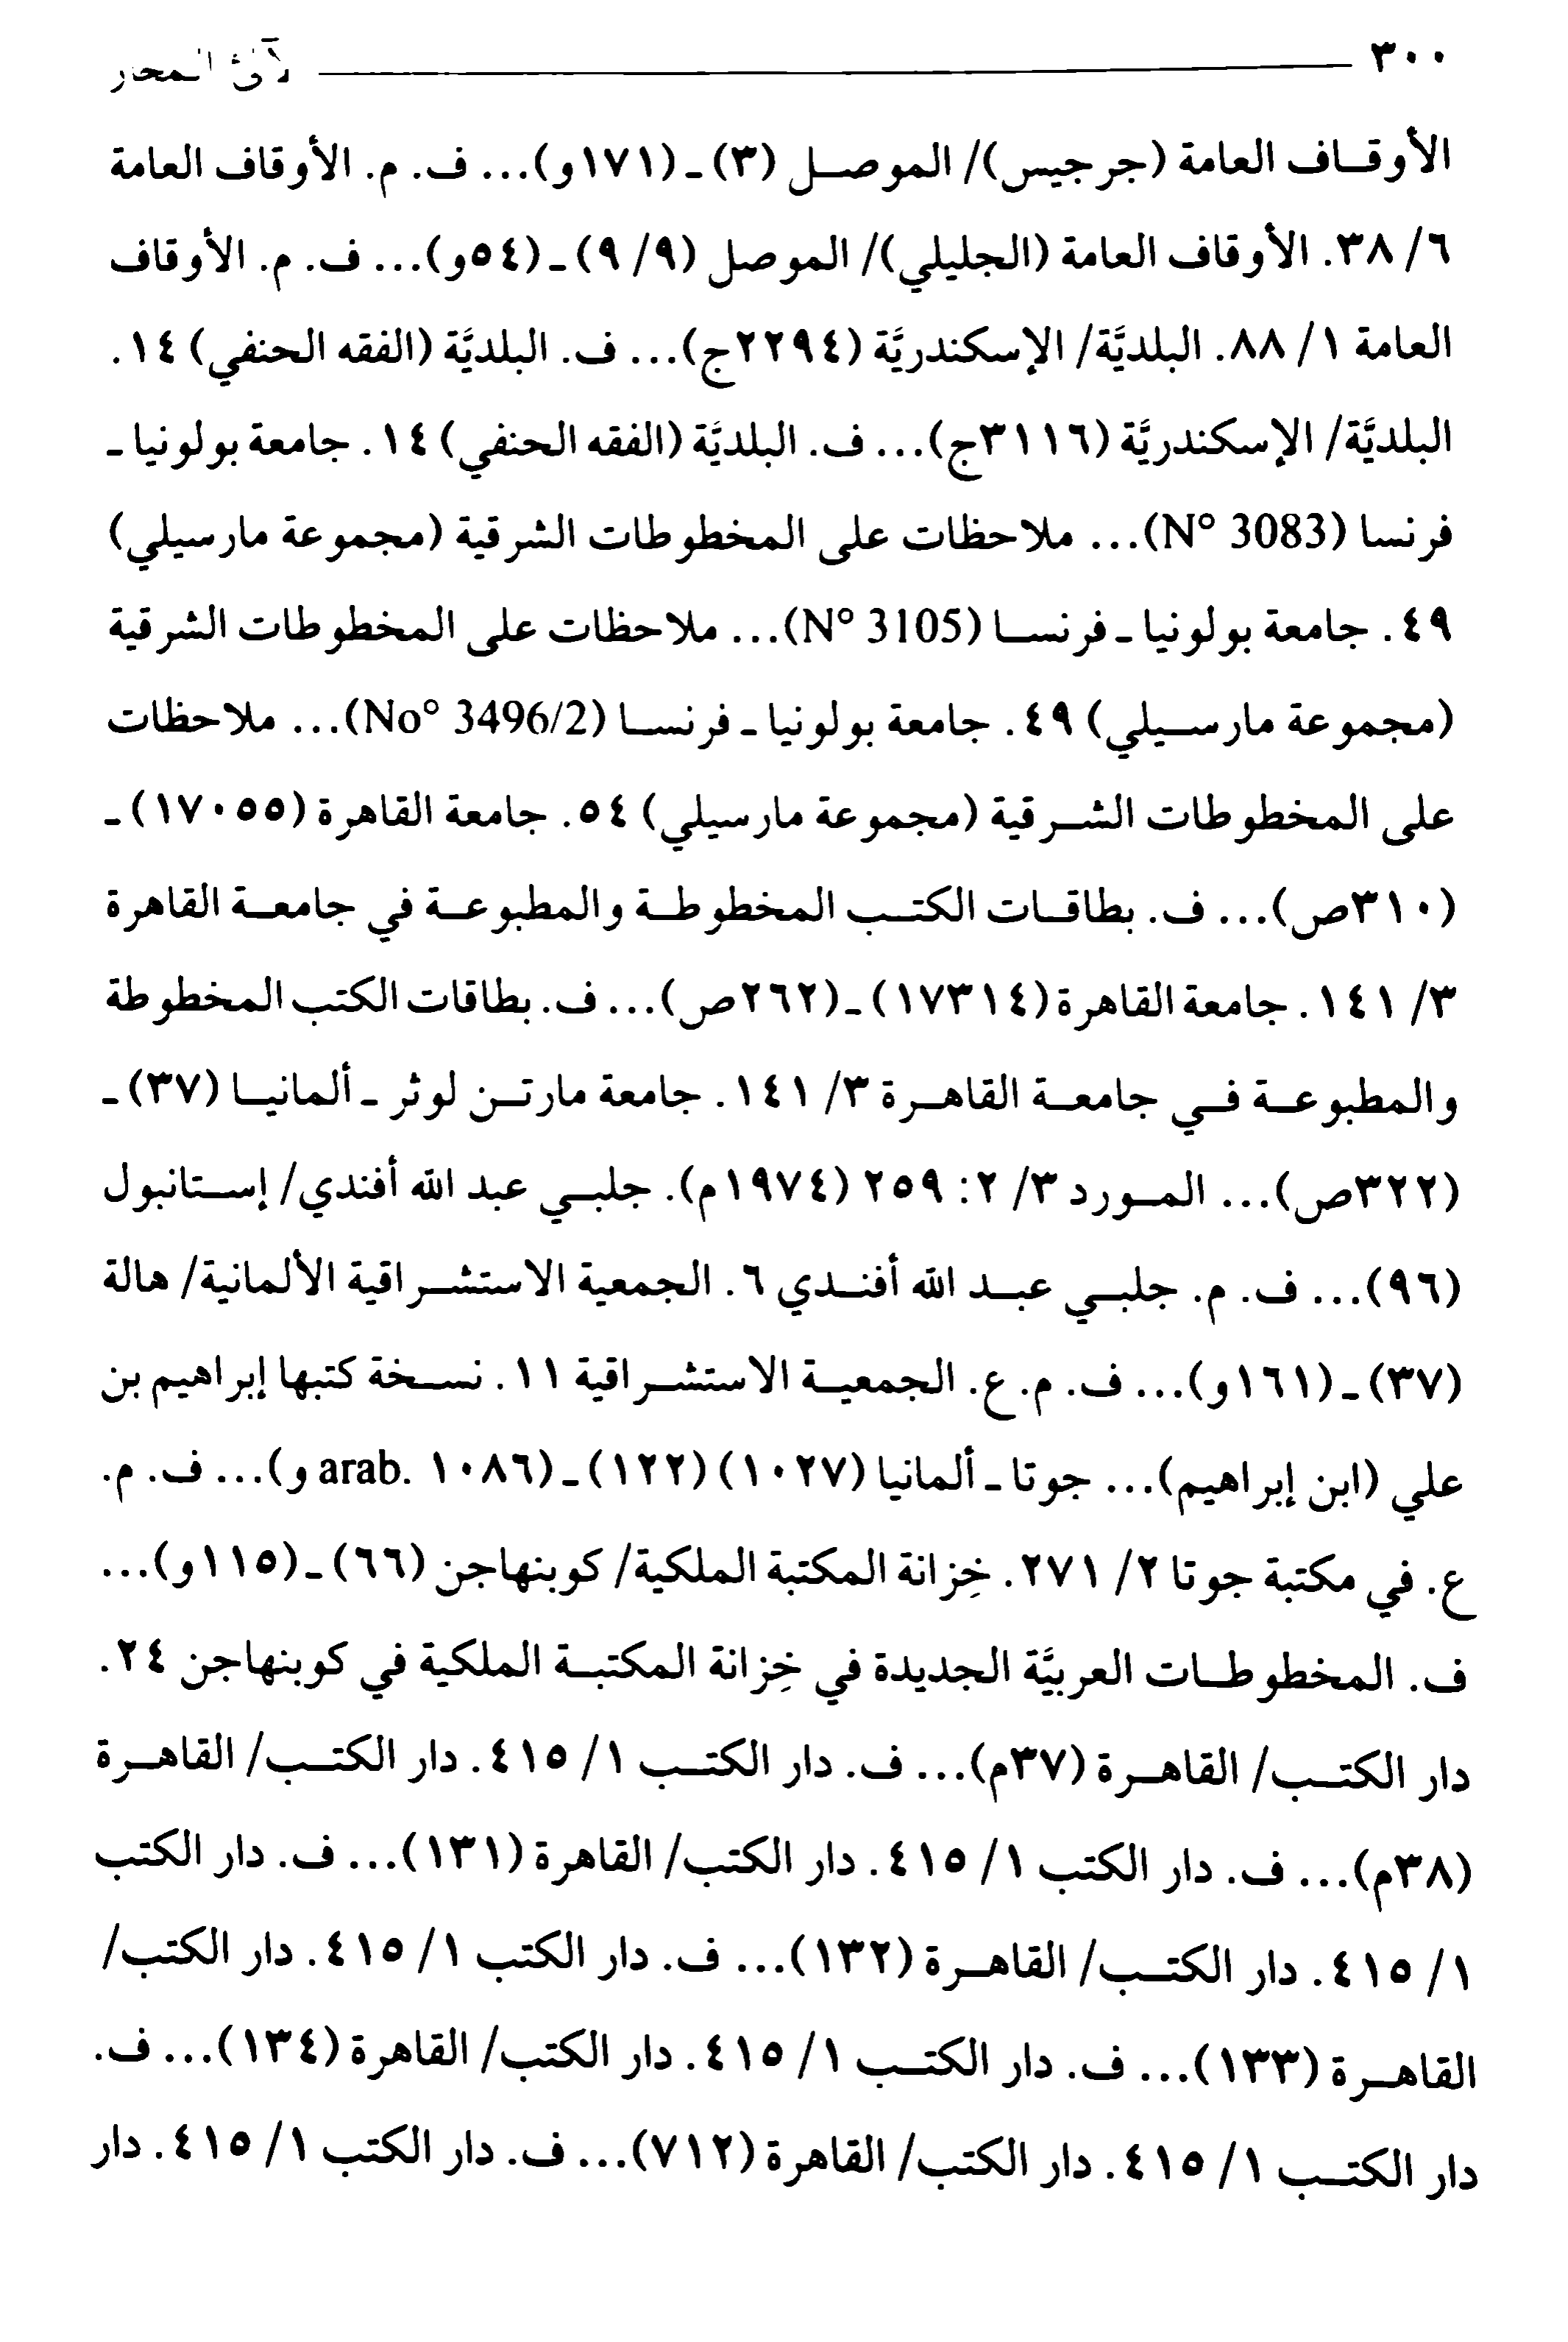 ٣٠٠ لآلئ المحار
الأوقاف العامة (جرجيس)/ الموصل (٣) ـ (١٧١و)... ف. م. الأوقاف العامة
٦/ ٣٨. الأوقاف العامة (الجليلي)/ الموصل (٩/ ٩) ـ (٥٤و)... ف. م. الأوقاف
العامة ١/ ٨٨. البلديَّة/ الإسكندريَّة (٢٢٩٤ج)... ف. البلديَّة (الفقه الحنفي) ١٤.
البلديَّة/ الإسكندريَّة (٣١١٦ج)... ف. البلديَّة (الفقه الحنفي) ١٤. جامعة بولونيا ـ
فرنسا (N° 3083)... ملاحظات على المخطوطات الشرقية (مجموعة مارسيلي)
٤٩. جامعة بولونيا ـ فرنسا (N° 3105)... ملاحظات على المخطوطات الشرقية
(مجموعة مارسيلي) ٤٩. جامعة بولونيا ـ فرنسا (No° 3496/2)... ملاحظات
على المخطوطات الشرقية (مجموعة مارسيلي) ٥٤. جامعة القاهرة (١٧٠٥٥) ـ
(٣١٠ص)... ف. بطاقات الكتب المخطوطة والمطبوعة في جامعة القاهرة
٣/ ١٤١. جامعة القاهرة (١٧٣١٤) ـ (٢٦٢ص)... ف. بطاقات الكتب المخطوطة
والمطبوعة في جامعة القاهرة ٣/ ١٤١. جامعة مارتن لوثر ـ ألمانيا (٣٧) ـ
(٣٢٢ص)... المورد ٣/ ٢: ٢٥٩ (١٩٧٤م). جلبي عبد الله أفندي/ إستانبول
(٩٦)... ف. م. جلبي عبد الله أفندي ٦. الجمعية الاستشراقية الألمانية/ هالة
(٣٧) ـ (١٦١و)... ف. م. ع. الجمعية الاستشراقية ١١. نسخة كتبها إبراهيم بن
علي (ابن إبراهيم)... جوتا ـ ألمانيا (١٠٢٧) (١٢٢) ـ (arab. ١٠٨٦و)... ف. م.
ع. في مكتبة جوتا ٢/ ٢٧١. خِزانة المكتبة الملكية/ كوبنهاجن (٦٦) ـ (١١٥و)...
ف. المخطوطات العربيَّة الجديدة في خِزانة المكتبة الملكية في كوبنهاجن ٢٤.
دار الكتب/ القاهرة (٣٧م)... ف. دار الكتب ١/ ٤١٥. دار الكتب/ القاهرة
(٣٨م)... ف. دار الكتب ١/ ٤١٥. دار الكتب/ القاهرة (١٣١)... ف. دار الكتب
١/ ٤١٥. دار الكتب/ القاهرة (١٣٢)... ف. دار الكتب ١/ ٤١٥. دار الكتب/
القاهرة (١٣٣)... ف. دار الكتب ١/ ٤١٥. دار الكتب/ القاهرة (١٣٤)... ف.
دار الكتب ١/ ٤١٥. دار الكتب/ القاهرة (٧١٢)... ف. دار الكتب ١/ ٤١٥. دار